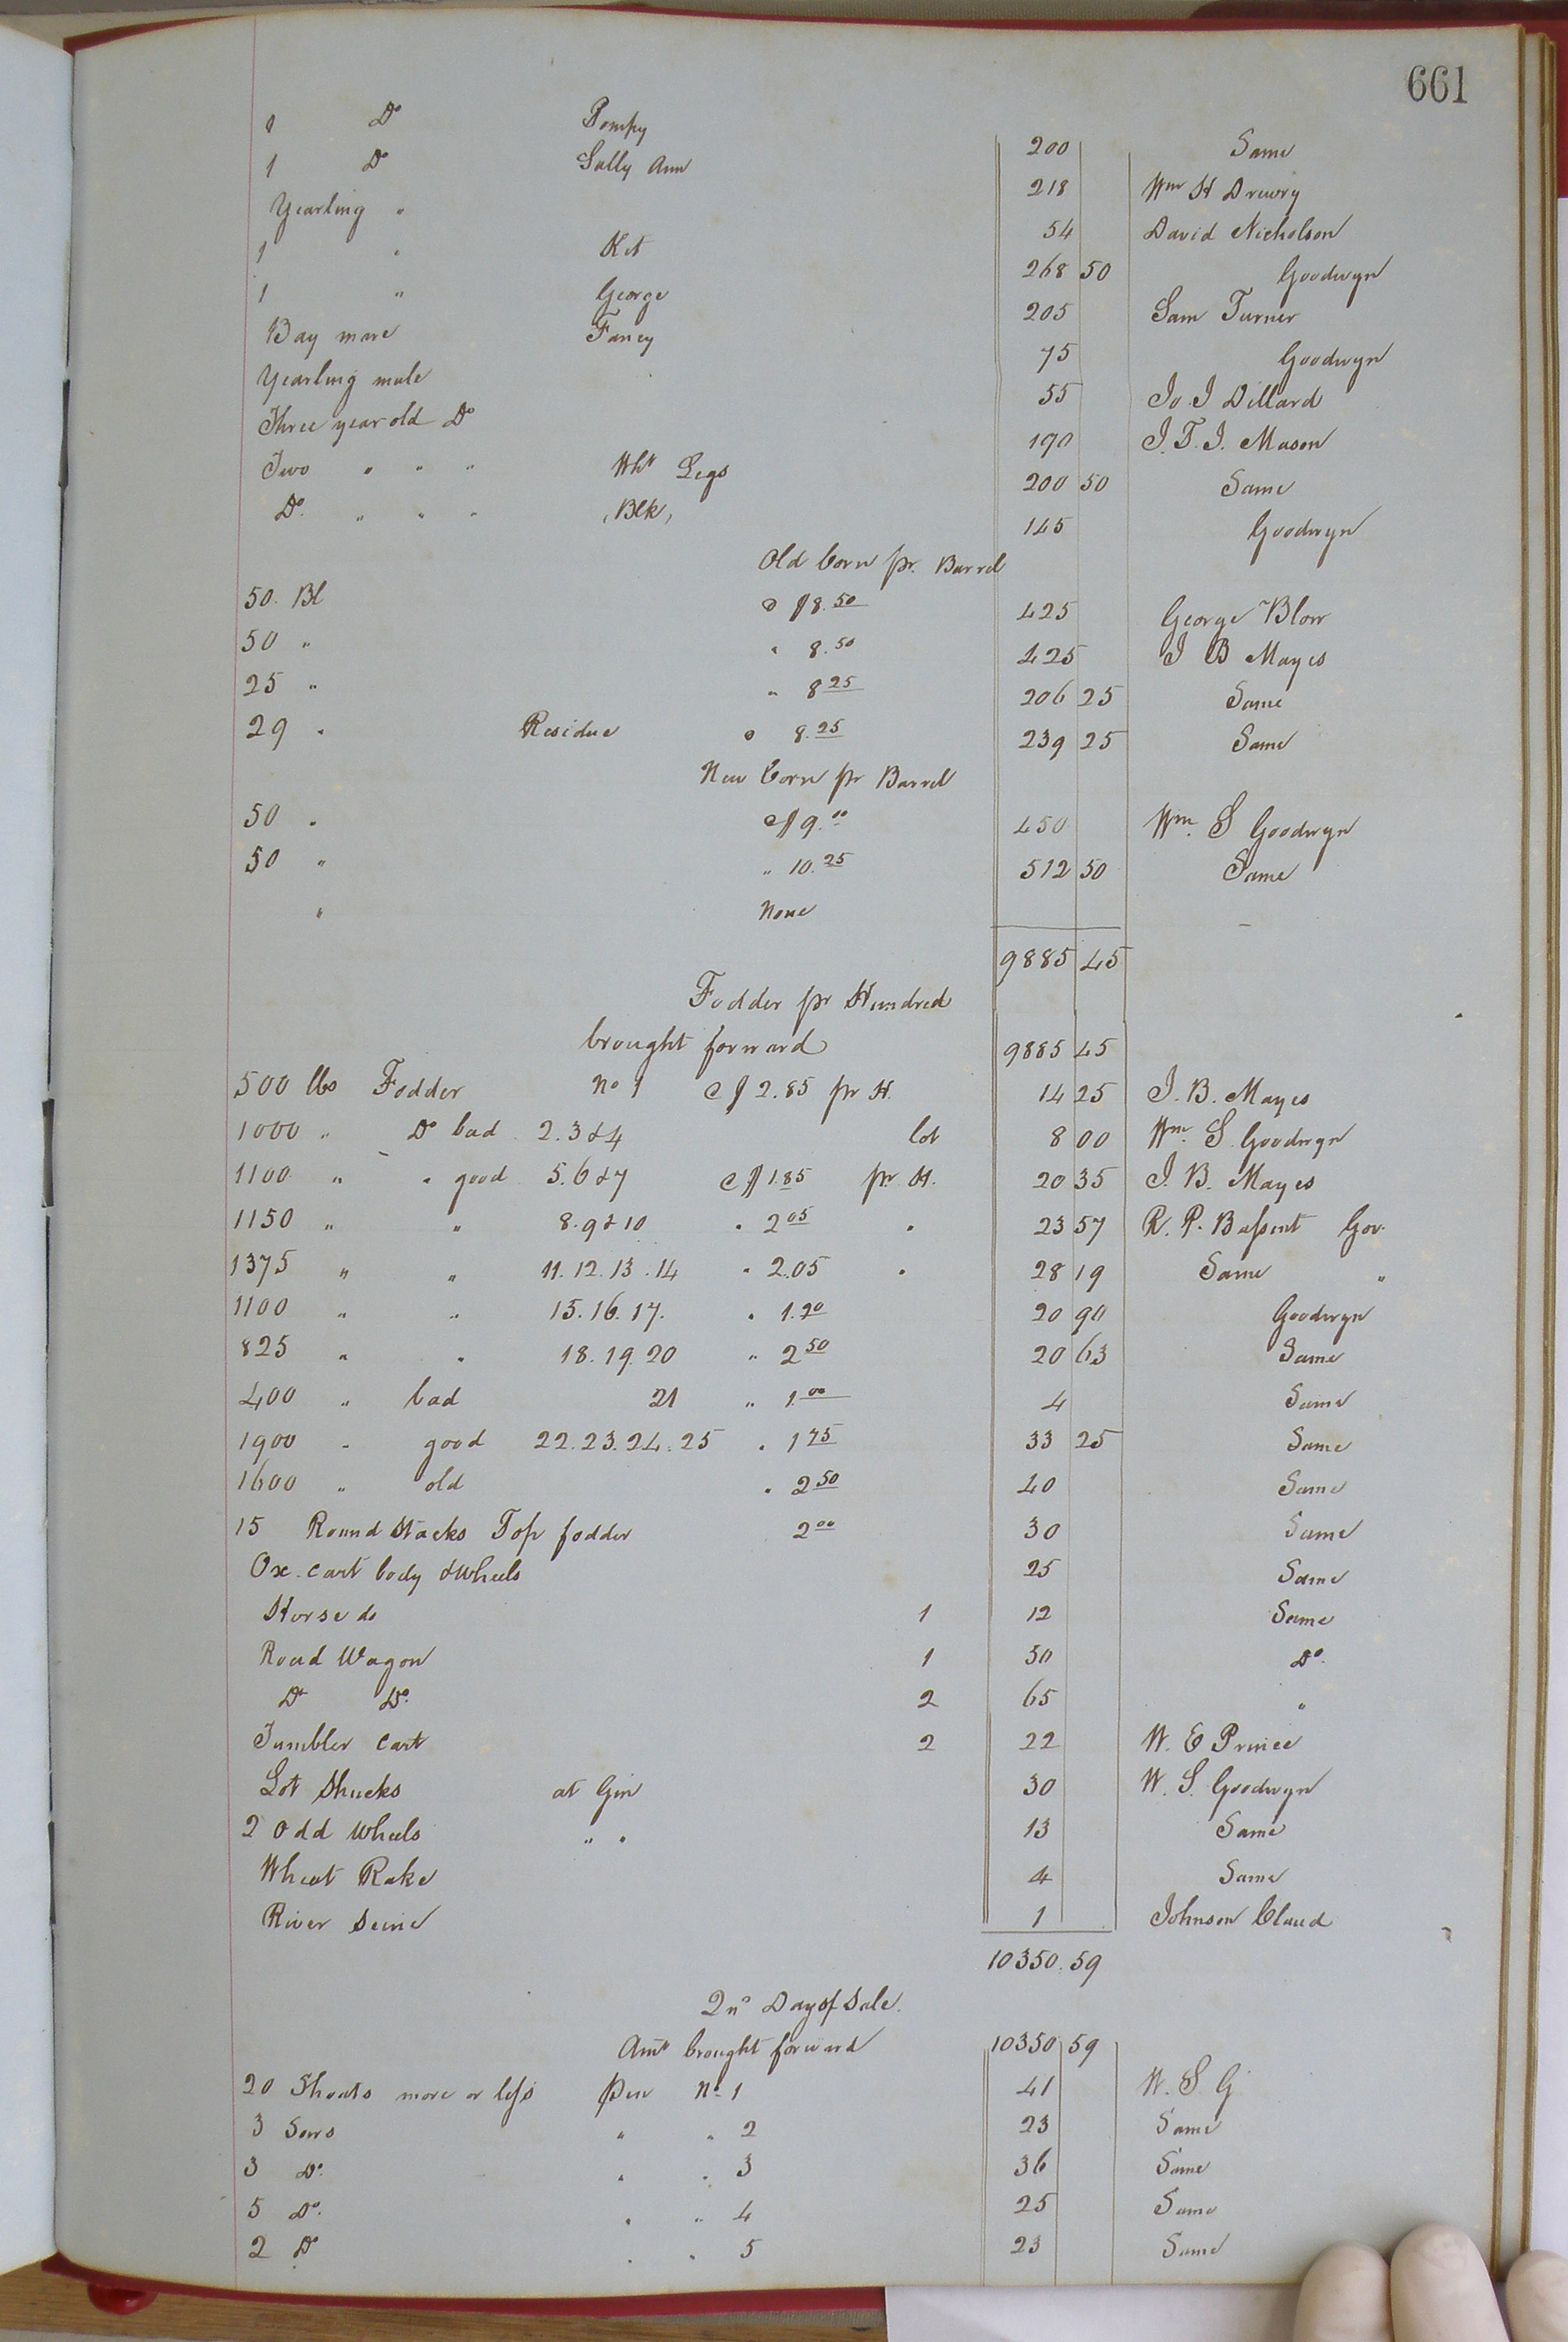 661
1 Do Pompy 200 Same
1 Do Sally Ann 218 Wm H Drewry
Yearling " 54 David Nicholson
1 " Kit 268 50 Goodwyn
1 " George 205 Sam Turner
Bay mare Fancy 75 Goodwyn
Yearling mule 55 Jo. J Dillard
Three year old Do 190 J. T. J. Mason
Two " " " Wht Legs 200 50 Same
Do. " " " (Blk) 145 Goodwyn
Old Corn pr. Barrel
50. Bl @ $8.50 425 George Blow
50 " " 8.50 425 J B Mayes
25 " " 8 25 206 25 Same
29 " Residue @ 8.25 239 25 Same
New Corn pr Barrel
50 " @ $9.00 450 Wm. S Goodwyn
50 " " 10.25 512 50 Same
" None
9885 45
Fodder pr Hundred
brought forward 9885 45
500 lbs Fodder No 1 @ $2.85 pr H. 14 25 J. B. Mayes
1000 " Do bad 2.3 & 4 lot 8 00 Wm. S. Goodwyn
1100 " " good 5.6 & 7 @ $1.85 pr. H. 20 35 J. B. Mayes
1150 " " 8.9 & 10 " 2 05 " 23 57 R. P. Gov.
1375 " " 11.12.13.14 " 2.05 " 28 19 Same "
1100 " " 15.16.17. " 1.90 20 90 Goodwyn
825 " " 18.19.20 " 2 50 20 63 Same
400 " bad 21 " 1.00 4 Same
1900 " good 22.23.24.25 " 1 75 33 25 Same
1600 " old " 2 50 40 Same
15 Round Stacks Top fodder 2 00 30 Same
Ox. cart body & wheels 25 Same
Horse do 1 12 Same
Road Wagon 1 50 Do.
Do Do. 2 65 "
Tumbler Cart 2 22 W. E Prince
Lot Shucks at Gin 30 W. S. Goodwyn
2 Odd Wheels " " 13 Same
Wheat Rake 4 Same
River Seine 1 Johnson Claud
10350.59
2nd Day of Sale.
Amt brought forward 10350 59
20 Shoats more or less Pen No. 1 41 W. S. G
3 Sows " " 2 23 Same
3 Do. " " 3 36 Same
5 Do. " " 4 25 Same
2 Do " " 5 23 Same